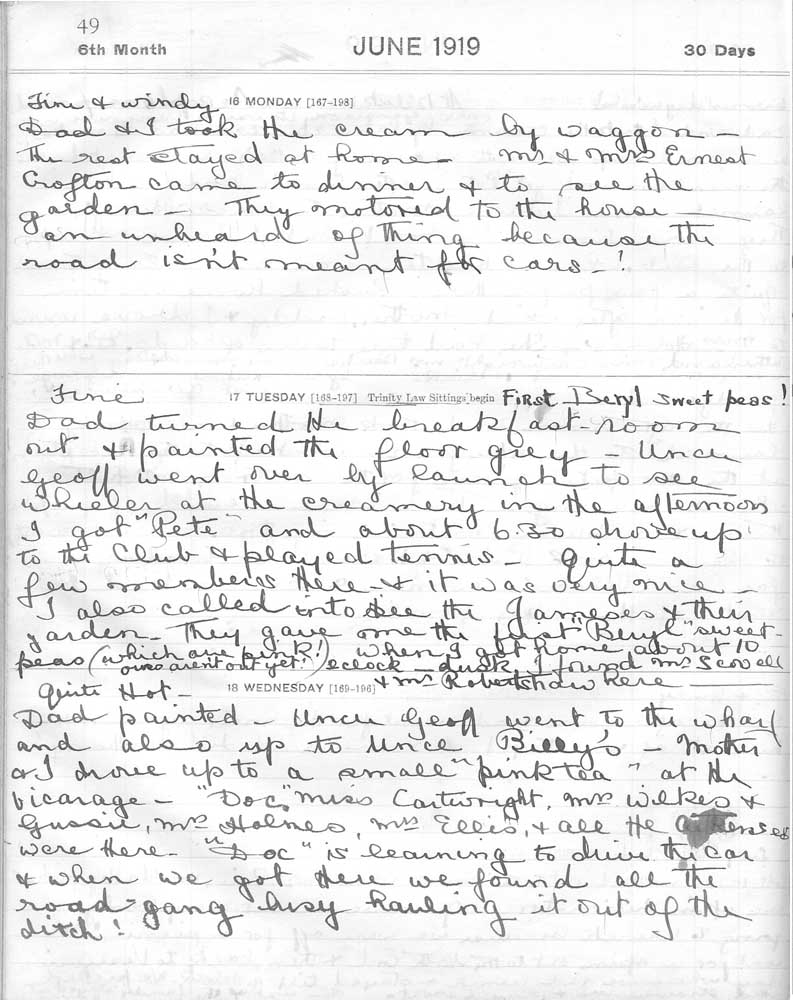 49
6th Month JUNE 1919 30 Days
Fine & windy 16 MONDAY [167-198]
Dad & I took the cream by waggon –
The rest stayed at home – Mr & Mrs Ernest
Crofton came to dinner & to see the
garden – They motored to the house –
an unheard of thing because the
road isn't meant for cars – !
Fine 17 TUESDAY [168-197] Trinity Law Sittings begin First Beryl sweet peas!
Dad turned the breakfast-room
out & painted the floor grey – Uncle
Geoff went over by launch to see
Wheeler at the creamery in the afternoon
I got "Pete" and about 6.30 drove up
to the Club & played tennis – Quite a
few members there – & it was very nice –
I also called into see the Jameses & their
garden – They gave me the first "Beryl" sweet-
peas (which are pink!) When I got home about 10
ours arent out yet! oclock – dusk, I found Mrs Scovell
& Mrs Robertshaw here
Quite Hot – 18 WEDNESDAY [169-196]
Dad painted – Uncle Geoff went to the wharf
and also up to Uncle Billy's – Mother
& I drove up to a small "pink tea" at the
Vicarage – "Doc", Miss Cartwright, Mrs Wilkes &
Gussie, Mrs Holmes, Mrs Ellis, & all the
were there – "Doc" is learning to drive the car
& when we got there we found all the
road-gang busy hauling it out of the
ditch!